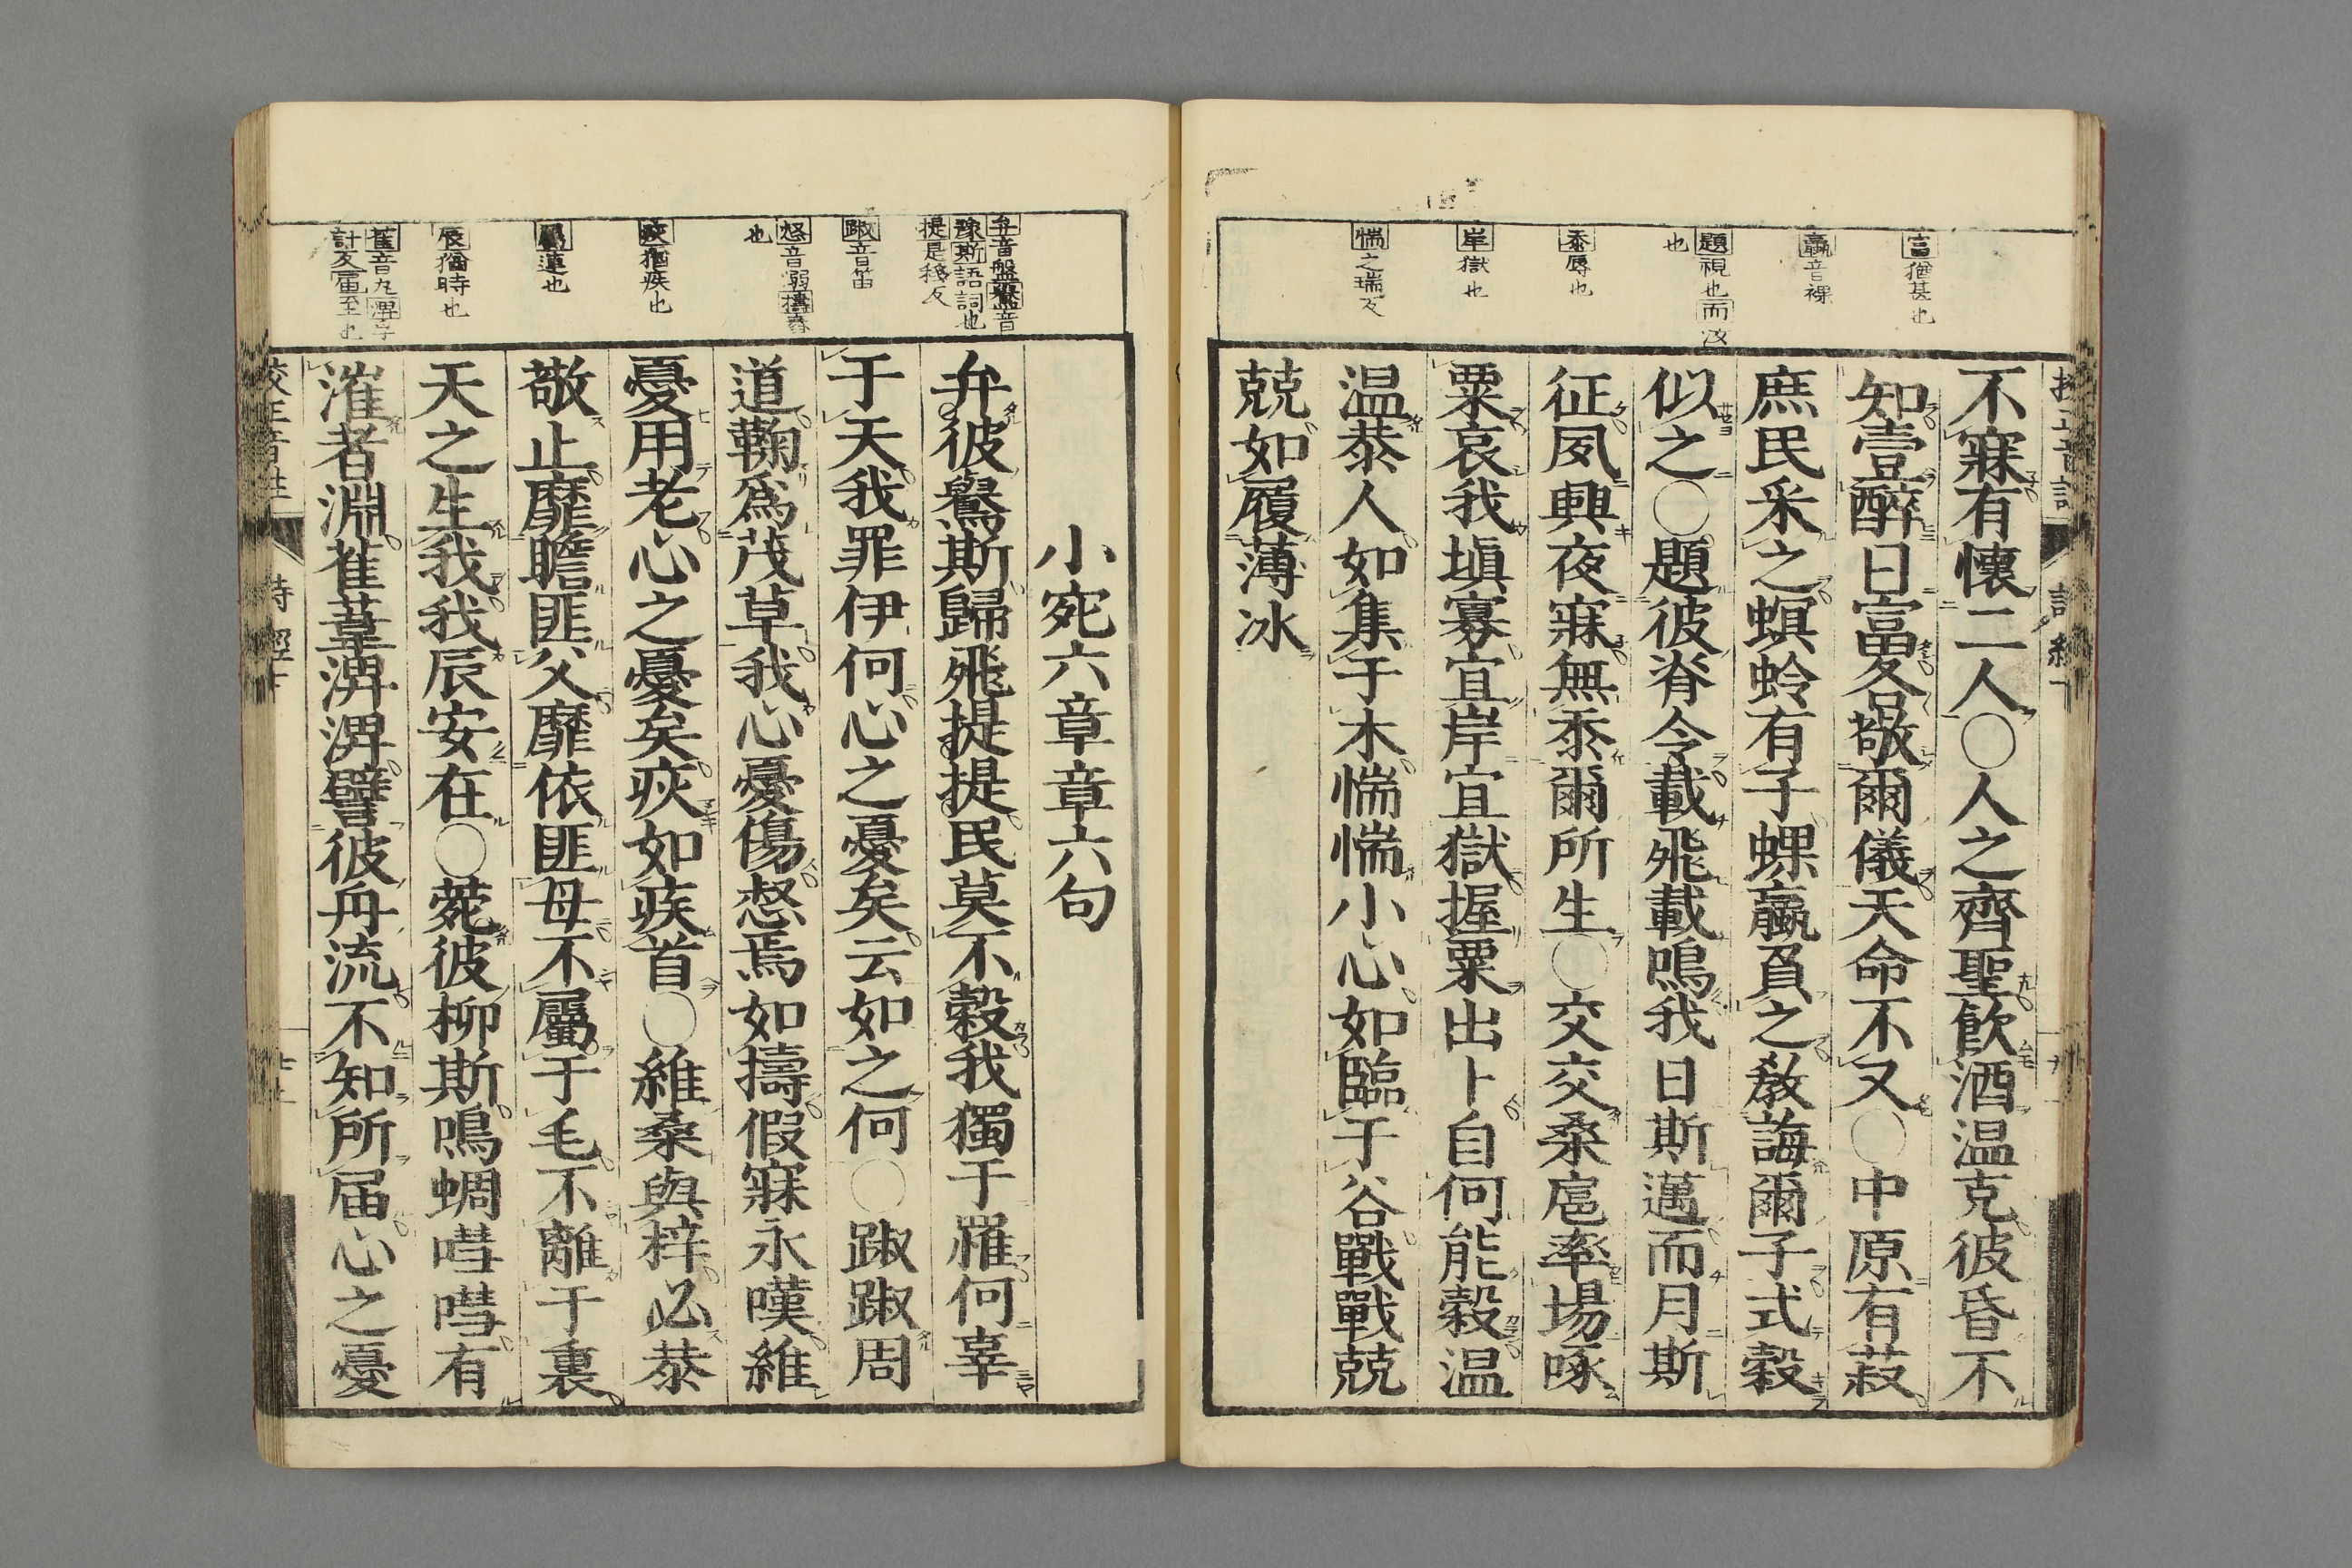 富猶甚也
蠃音裸
題視也而汝
也
忝辱也
岸獄也
惴之瑞反
不寐有懷二人〇人之齊聖飲酒温克彼昏不
知壹醉日富各敬爾儀天命不又〇中原有菽
庶民采之螟蛉有子蜾蠃負之敎誨爾子式穀
似之〇題彼脊令載飛載鳴我日斯邁而月斯
征夙興夜寐無忝爾所生〇交交桑扈率場啄
粟哀我塡寡宜岸宜獄握粟出卜自何能穀温
温恭人如集于木惴惴小心如臨于谷戰戰兢
兢如履薄冰
弁音盤鸒音
豫斯語詞也
提是移反
踧音笛
惄音溺擣舂
也
疢猶疾也
屬連也
辰猶時也
萑音丸淠孚
計反届至也
小宛六章章六句
弁彼鸒斯歸飛提提民莫不穀我獨于罹何辜
于天我罪伊何心之憂矣云如之何〇踧踧周
道鞫爲茂草我心憂傷惄焉如擣假寐永嘆維
憂用老心之憂矣疢如疾首〇維桑與梓必恭
敬止靡瞻匪父靡依匪母不屬于毛不離于裏
天之生我我辰安在〇菀彼柳斯鳴蜩嘒嘒有
漼者淵萑葦淠淠譬彼舟流不知所届心之憂